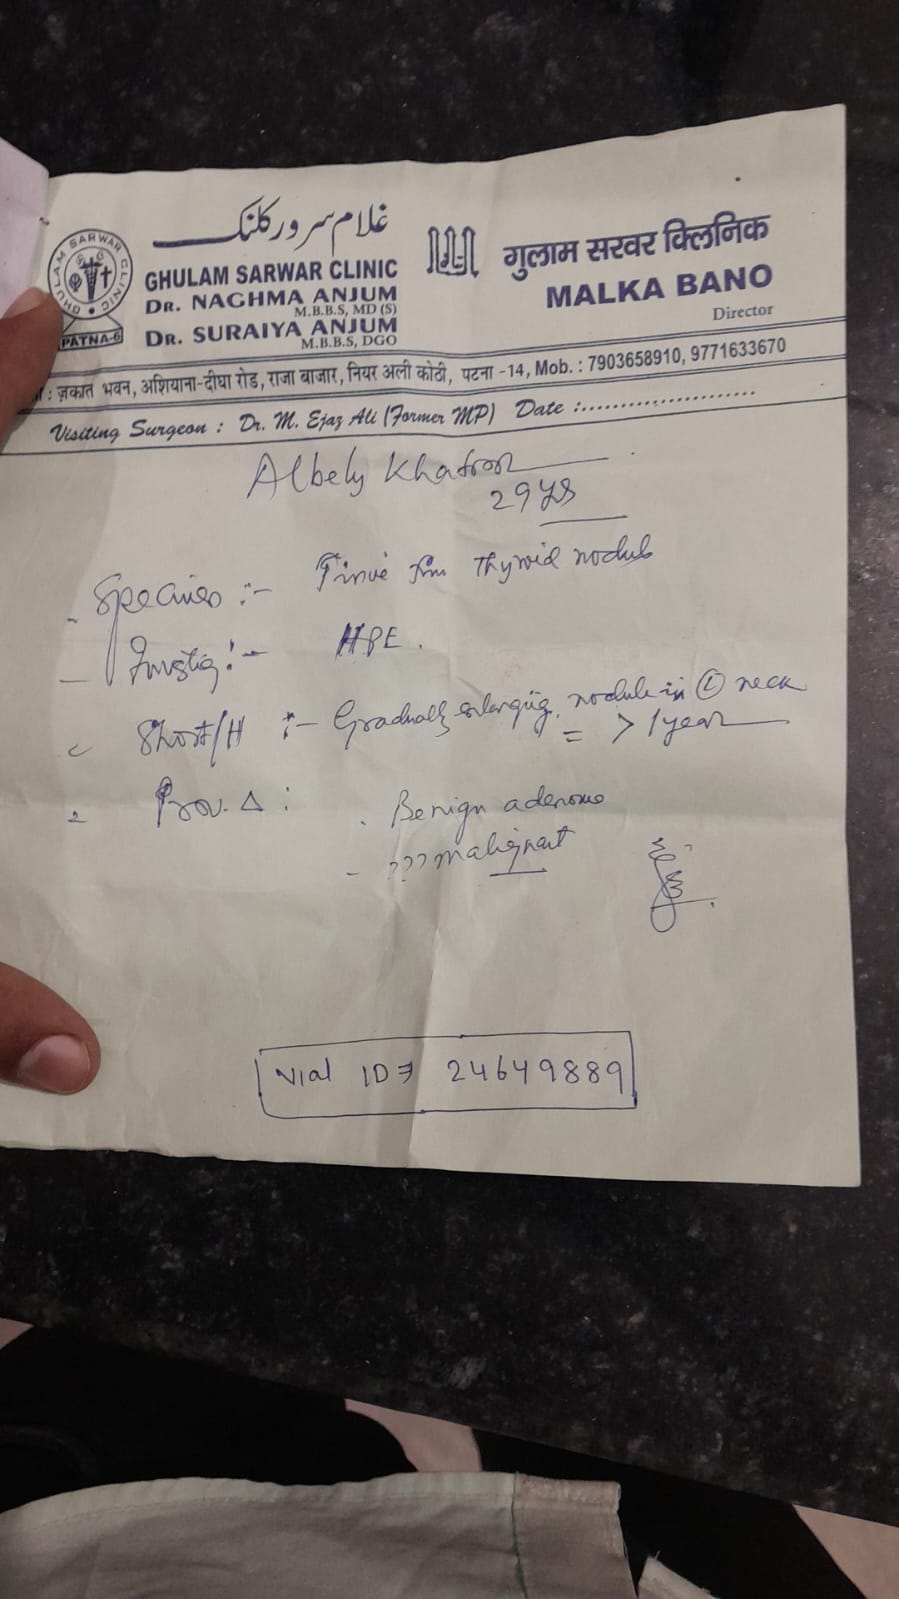 غلام سرور کلنک
GHULAM SARWAR CLINIC
DR. NAGHMA ANJUM
M.B.B.S, MD (S)
DR. SURAIYA ANJUM
M.B.B.S, DGO
GHULAM SARWAR CLINIC
PATNA-6
गुलाम सरवर क्लिनिक
MALKA BANO
Director
: ज़कात भवन, अशियाना-दीघा रोड, राजा बाजार, नियर अली कोठी, पटना -14, Mob. : 7903658910, 9771633670
Visiting Surgeon : Dr. M. Ejaz Ali (Former MP) Date :......................
Albely Khatoon
29 ys
- Specimen :- Tissue from Thyroid nodule
- Investig :- HPE.
Short/H :- Gradually enlarging nodule in Ⓛ neck
= > 1 year
Prov. Δ : . Benign adenoma
- ??? malignant
Vial ID 24649889